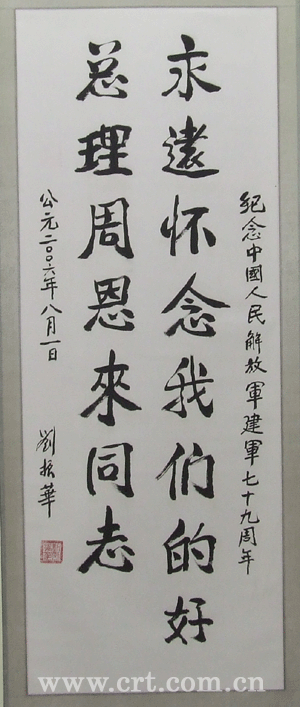 紀念中國人民解放軍建軍七十九周年
永遠怀念我们的好
总理周恩來同志
公元二〇〇六年八月一日
劉振華
www.crt.com.cn